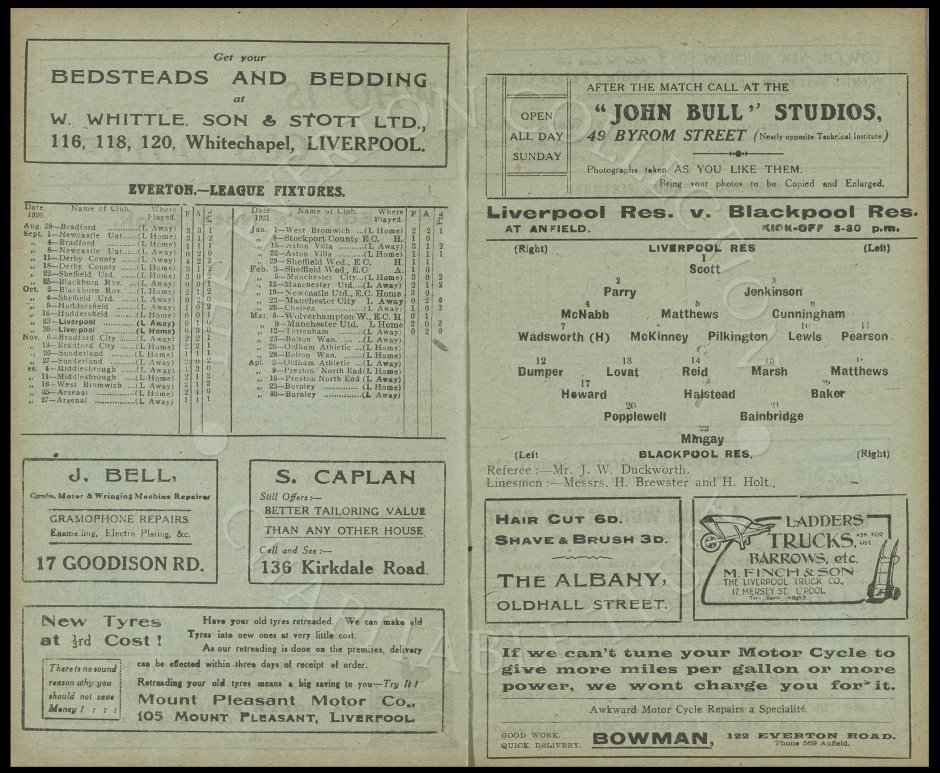 Get your
BEDSTEADS AND BEDDING
at
W. WHITTLE, SON & STOTT LTD.,
116, 118, 120, Whitechapel, LIVERPOOL.
EVERTON.—LEAGUE FIXTURES.
Date 1920. Name of Club. Where Played. F A
Aug. 28—Bradford (L Away) 3 3 1
Sept. 1—Newcastle Unt. (L Home) 3 1 2
„ 4—Bradford (L Home) 1 1 1
„ 8—Newcastle Unt (L Away) 0 2 0
„ 11—Derby County (L Away)
„ 18—Derby County (L Home) 3 1 2
„ 22—Sheffield Utd. (L Home)
„ 25—Blackburn Rov. (L Away)
Oct. 2—Blackburn Rov. (L Home) 2 1 2
„ 4—Sheffield Utd. (L Away)
„ 9—Huddersfield (L Away) 1 0 2
„ 16—Huddersfield (L Home)
„ 23—Liverpool (L Away) 0 1 0
„ 30—Liverpool (L Home)
Nov. 6—Bradford City (L Away) 2 2 1
„ 13—Bradford City (L Home) 2 2 1
„ 20—Sunderland (L Home) 1 1 1
„ 27—Sunderland (L Away)
ec. 4—Middlesbrough (L Away)
„ 11—Middlesbrough (L Home) 2 1 2
„ 18—West Bromwich (L Away)
„ 25—Arsenal (L Home) 2 4 0
„ 27—Arsenal (L Away) 1 1 1
Date 1921. Name of Club. Where Played. F A Pts.
Jan. 1—West Bromwich (L Home) 2 2 1
„ 8—Stockport County E.C. H. 1 0
„ 15—Aston Villa (L Away) 3 1 2
„ 22—Aston Villa (L Home) 1 1 1
„ 29—Sheffield Wed., E.C. H. 1 1
Feb. 3—Sheffield Wed., E.C A. 1 0
„ 5—Manchester City (L Home) 3 0 2
„ 12—Manchester Utd (L Away) 2 1 2
„ 19—Newcastle Utd., E.C. Home 3 0
„ 23—Manchester City L Away 0 2 0
„ 26—Chelsea (L Away) 1 0 2
Mar. 5—Wolverhampton W., E.C. H 0 1
„ 9—Manchester Utd. L Home 2 0 2
„ 12—Tottenham (L Away) 0 2 0
„ 25—Bolton Wan. (L Away)
„ 26—Oldham Athletic (L Home)
„ 28—Bolton Wan. (L Home)
Apl. 2—Oldham Athletic (L Away)
„ 9—Preston North End (L Home)
„ 16—Preston North End (L Away)
„ 23—Burnley (L Home)
„ 30—Burnley (L Away)
J. BELL,
Cycle, Motor & Wringing Machine Repairer
GRAMOPHONE REPAIRS
Enameling, Electro Plating, &c.
17 GOODISON RD.
S. CAPLAN
Still Offers:—
BETTER TAILORING VALUE
THAN ANY OTHER HOUSE
Call and See:—
136 Kirkdale Road.
New Tyres
at ⅓rd Cost !
There is no sound
reason why you
should not save
Money ! : : :
Have your old tyres retreaded. We can make old
Tyres into new ones at very little cost.
As our retreading is done on the premises, delivery
can be effected within three days of receipt of order.
Retreading your old tyres means a big saving to you—Try It !
Mount Pleasant Motor Co.,
105 MOUNT PLEASANT, LIVERPOOL
OPEN
ALL DAY
SUNDAY
AFTER THE MATCH CALL AT THE
"JOHN BULL" STUDIOS,
49 BYROM STREET (Nearly opposite Technical Institute)
Photographs taken AS YOU LIKE THEM.
Bring your photos to be Copied and Enlarged.
Liverpool Res. v. Blackpool Res.
AT ANFIELD. KICK-OFF 3-30 p.m.
(Right) LIVERPOOL RES (Left)
1
Scott
2 3
Parry Jenkinson
4 5 6
McNabb Matthews Cunningham
7 8 9 10 11
Wadsworth (H) McKinney Pilkington Lewis Pearson
12 13 14 15 16
Dumper Lovat Reid Marsh Matthews
17 18 19
Howard Halstead Baker
20 21
Popplewell Bainbridge
22
Mingay
(Left BLACKPOOL RES, (Right)
Referee :—Mr. J. W. Duckworth.
Linesmen :—Messrs. H. Brewster and H. Holt.
HAIR CUT 6D.
SHAVE & BRUSH 3D.
THE ALBANY,
OLDHALL STREET.
LADDERS
TRUCKS, ASK FOR LIST
BARROWS, etc.
M. FINCH & SON
THE LIVERPOOL TRUCK CO,
17, MERSEY ST, L'POOL
Tel:- Bank, 4863
If we can't tune your Motor Cycle to
give more miles per gallon or more
power, we wont charge you for it.
Awkward Motor Cycle Repairs a Specialité.
GOOD WORK.
QUICK DELIVERY.
BOWMAN, 122 EVERTON ROAD.
'Phone 569 Anfield.